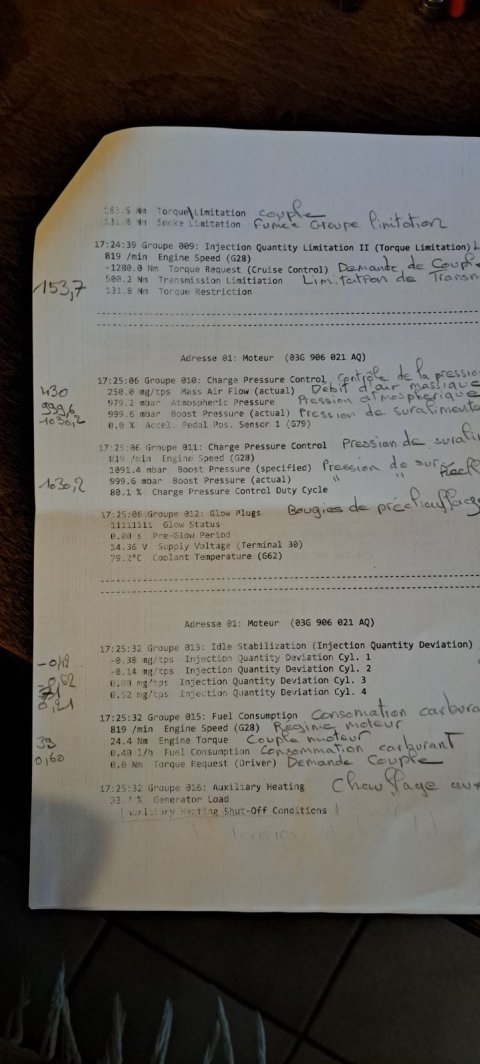 Nm Torque Limitation couple
131.8 Nm Smoke Limitation Fumée Groupe limitation
17:24:39 Groupe 009: Injection Quantity Limitation II (Torque Limitation) L
819 /min Engine Speed (G28)
-1280.0 Nm Torque Request (Cruise Control) Demande de Couple
500.2 Nm Transmission Limitiation Limitation de Transm
153,7 131.8 Nm Torque Restriction
Adresse 01: Moteur (03G 906 021 AQ)
17:25:06 Groupe 010: Charge Pressure Control Contrôle de la pressio
430 250.0 mg/tps Mass Air Flow (actual) Débit d'air massique
999,6 979.2 mbar Atmospheric Pressure Pression atmosphérique
1030,2 999.6 mbar Boost Pressure (actual) Pression de suralimenta
0.0 % Accel. Pedal Pos. Sensor 1 (G79)
17:25:06 Groupe 011: Charge Pressure Control Pression de surali
819 /min Engine Speed (G28)
1091.4 mbar Boost Pressure (specified) Pression de sur
1030,2 999.6 mbar Boost Pressure (actual) " "
80.1 % Charge Pressure Control Duty Cycle
17:25:06 Groupe 012: Glow Plugs Bougies de préchauffage
11111111 Glow Status
0.00 s Pre-Glow Period
14.36 V Supply Voltage (Terminal 30)
79.2°C Coolant Temperature (G62)
Adresse 01: Moteur (03G 906 021 AQ)
17:25:32 Groupe 013: Idle Stabilization (Injection Quantity Deviation)
-0.38 mg/tps Injection Quantity Deviation Cyl. 1
-0.14 mg/tps Injection Quantity Deviation Cyl. 2
0.00 mg/tps Injection Quantity Deviation Cyl. 3
0,21 0.52 mg/tps Injection Quantity Deviation Cyl. 4
17:25:32 Groupe 015: Fuel Consumption Consomation carbura
819 /min Engine Speed (G28) Régime moteur
39 24.4 Nm Engine Torque Couple moteur
0,60 0.40 l/h Fuel Consumption Consommation carburant
0.0 Nm Torque Request (Driver) Demande Couple
17:25:32 Groupe 016: Auxiliary Heating Chauffage aux
% Generator Load
Auxiliary Heating Shut-Off Conditions